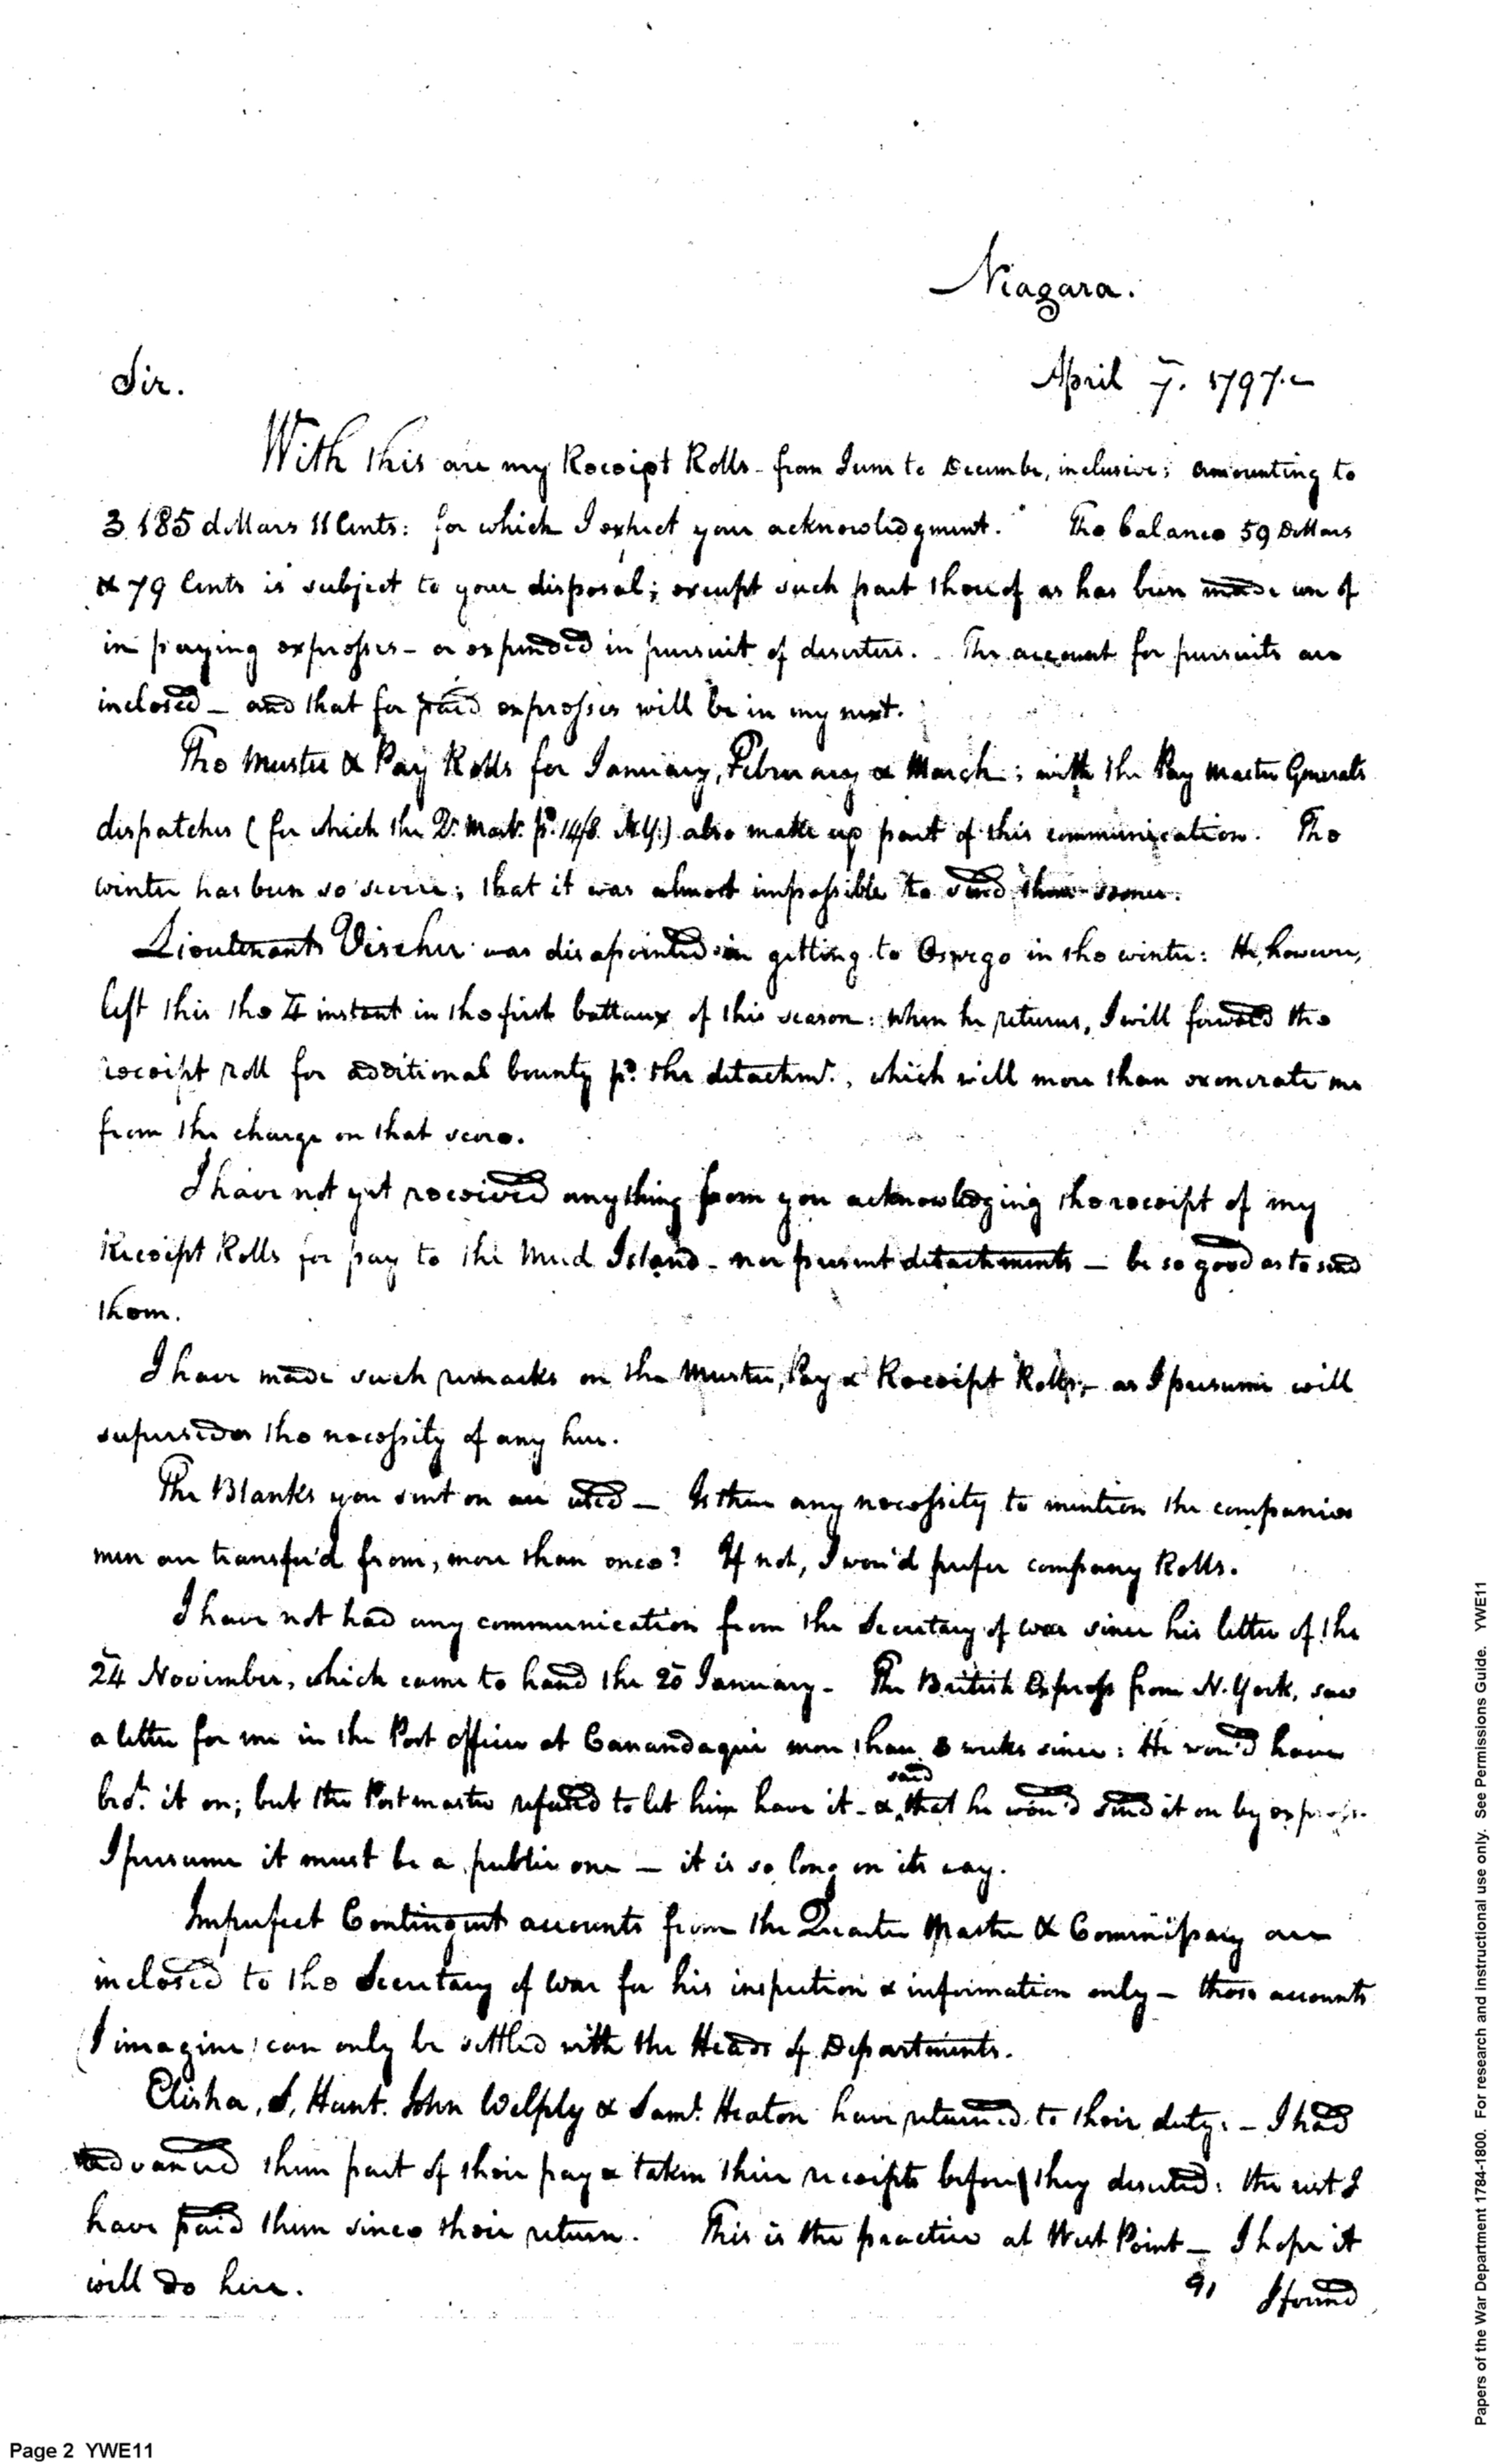 Niagara.
Sir.
April 7. 1797.
With this are my Receipt Rolls - from June to December, inclusive; amounting to
3.185 dollars 11 Cents: for which I expect your acknowledgment. The balance 59 Dollars
& 79 Cents is subject to your disposal; except such part thereof as has been made use of
in paying expresses - or expended in pursuit of deserters. The account for pursuits are
inclosed - and that for paid expresses will be in my next.
The Muster & Pay Rolls for January, February & March; with the Pay Master Generals
dispatches (for which the Qr. Mastr. pd. 14/8. N.Y.) also make up part of this communication. The
winter has been so severe; that it was almost impossible to send them sooner.
Lieutenant Vischer was disapointed in getting to Oswego in the winter: He, however,
left this the 4 instant in the first batteaux of this season: when he returns, I will forward the
receipt roll for additional bounty pd. the detachmt., which will more than exonerate me
from the charge on that score.
I have not yet received anything from you acknowledging the receipt of my
Receipt Rolls for pay to the Mud Island - nor present detachments - be so good as to send
them.
I have made such remarks on the Muster, Pay & Receipt Rolls; - as I presume will
supersedes the necessity of any here.
The Blanks you sent on are used - Is there any necessity to mention the companies
men are transfer'd from, more than once? If not, I wou'd prefer company Rolls.
I have not had any communication from the Secretary of war since his letter of the
24 November, which came to hand the 20 January - The British Express from N. York, saw
a letter for me in the Post office at Canandaqui more than 3 weeks since: He wou'd have
brot. it on; but the Postmaster refused to let him have it - & said that he wou'd send it on by express.
I presume it must be a public one - it is so long on its way.
Imperfect Contingent accounts from the Quarter Master & Commissary are
inclosed to the Secretary of War for his inspection & information only - those accounts
(I imagine) can only be settled with the Heads of Departments.
Elisha, S, Hunt. John Welply & Saml. Heaton have returned to their duty: - I had
advanced them part of their pay & taken their receipts before they deserted: the rest I
have paid them since their return. This is the practice at West Point - I hope it
will do here.
91 I found
Papers of the War Department 1784-1800. For research and instructional use only. See Permissions Guide. YWE11
Page 2 YWE11